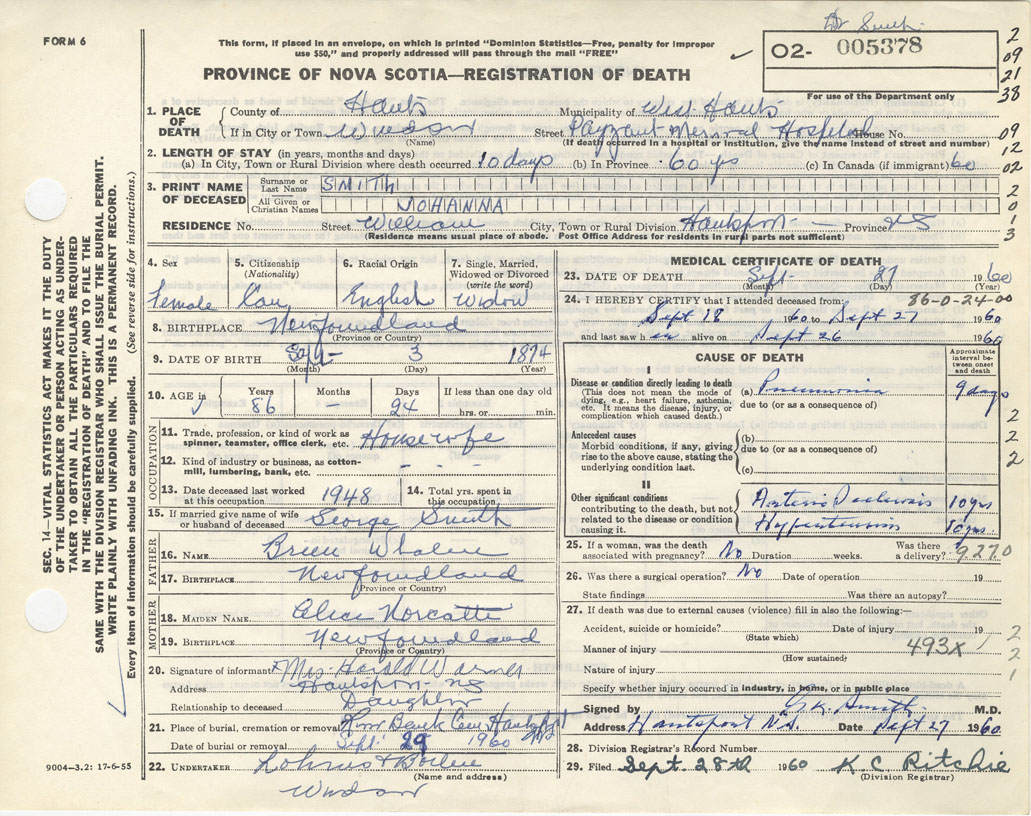 Dr Smith
FORM 6
This form, if placed in an envelope, on which is printed "Dominion Statistics—Free, penalty for improper
use $50," and properly addressed will pass through the mail "FREE"
O2- 005378
For use of the Department only
PROVINCE OF NOVA SCOTIA—REGISTRATION OF DEATH
2
09
21
38
09
12
02
2
0
1
3
1. PLACE OF DEATH
County of Hants Municipality of West Hants
If in City or Town Windsor Street Payzant Memorial Hospital House No.
(Name) (If death occurred in a hospital or institution, give the name instead of street and number)
2. LENGTH OF STAY (in years, months and days)
(a) In City, Town or Rural Division where death occurred 10 days (b) In Province 60 yrs (c) In Canada (if immigrant) 60
3. PRINT NAME OF DECEASED
Surname or Last Name SMITH
All Given or Christian Names JOHANNA
RESIDENCE No. Street William City, Town or Rural Division Hantsport Province NS
(Residence means usual place of abode. Post Office Address for residents in rural parts not sufficient)
SEC. 14—VITAL STATISTICS ACT MAKES IT THE DUTY
OF THE UNDERTAKER OR PERSON ACTING AS UNDER-
TAKER TO OBTAIN ALL THE PARTICULARS REQUIRED
IN THE "REGISTRATION OF DEATH" AND TO FILE THE
SAME WITH THE DIVISION REGISTRAR WHO SHALL ISSUE THE BURIAL PERMIT.
WRITE PLAINLY WITH UNFADING INK. THIS IS A PERMANENT RECORD.
Every item of information should be carefully supplied. (See reverse side for instructions.)
4. Sex
Female
5. Citizenship
(Nationality)
Can
6. Racial Origin
English
7. Single, Married,
Widowed or Divorced
(write the word)
Widow
8. BIRTHPLACE Newfoundland
(Province or Country)
9. DATE OF BIRTH Sept- 3 1874
(Month) (Day) (Year)
10. AGE in
Years Months Days If less than one day old
86 — 24 hrs. or min.
OCCUPATION
11. Trade, profession, or kind of work as
spinner, teamster, office clerk, etc. Housewife
12. Kind of industry or business, as cotton-
mill, lumbering, bank, etc. - - -
13. Date deceased last worked
at this occupation 1948
14. Total yrs. spent in
this occupation
15. If married give name of wife
or husband of deceased George Smith
FATHER
16. NAME Whalen
17. BIRTHPLACE Newfoundland
(Province or Country)
MOTHER
18. MAIDEN NAME Alice
19. BIRTHPLACE Newfoundland
(Province or Country)
20. Signature of informant Mrs. Harold
Address Hantsport NS
Relationship to deceased Daughter
21. Place of burial, cremation or removal Hantsport NS
Date of burial or removal Sept. 29 1960
22. UNDERTAKER
(Name and address)
Windsor
9004—3.2: 17-6-55
MEDICAL CERTIFICATE OF DEATH
23. DATE OF DEATH Sept- 27 1960
(Month) (Day) (Year)
24. I HEREBY CERTIFY that I attended deceased from: 86-0-24-00
Sept 18 1960 to Sept 27 1960
and last saw her alive on Sept 26 1960
CAUSE OF DEATH
Approximate
interval be-
tween onset
and death
I
Disease or condition directly leading to death
(This does not mean the mode
of dying, e.g., heart failure, asthenia,
etc. It means the disease, injury, or
complication which caused death.)
(a) Pneumonia 9 days
due to (or as a consequence of)
Antecedent causes
Morbid conditions, if any, giving
rise to the above cause, stating the
underlying condition last.
(b)
due to (or as a consequence of)
(c)
II
Other significant conditions
contributing to the death, but not
related to the disease or condition
causing it.
Arterio Sclerosis 10 yrs
Hypertension 10 yrs.
2
2
2
25. If a woman, was the death
associated with pregnancy? No Duration weeks. Was there
a delivery? 9270
26. Was there a surgical operation? No Date of operation 19
State findings Was there an autopsy?
27. If death was due to external causes (violence) fill in also the following:—
Accident, suicide or homicide? Date of injury 19
(State which)
Manner of injury 493X
(How sustained)
Nature of injury
Specify whether injury occurred in industry, in home, or in public place
2
1
2
1
Signed by G.K. Smith M.D.
Address Hantsport N.S. Date Sept 27 1960
28. Division Registrar's Record Number
29. Filed Sept. 28th 1960 K C Ritchie
(Division Registrar)